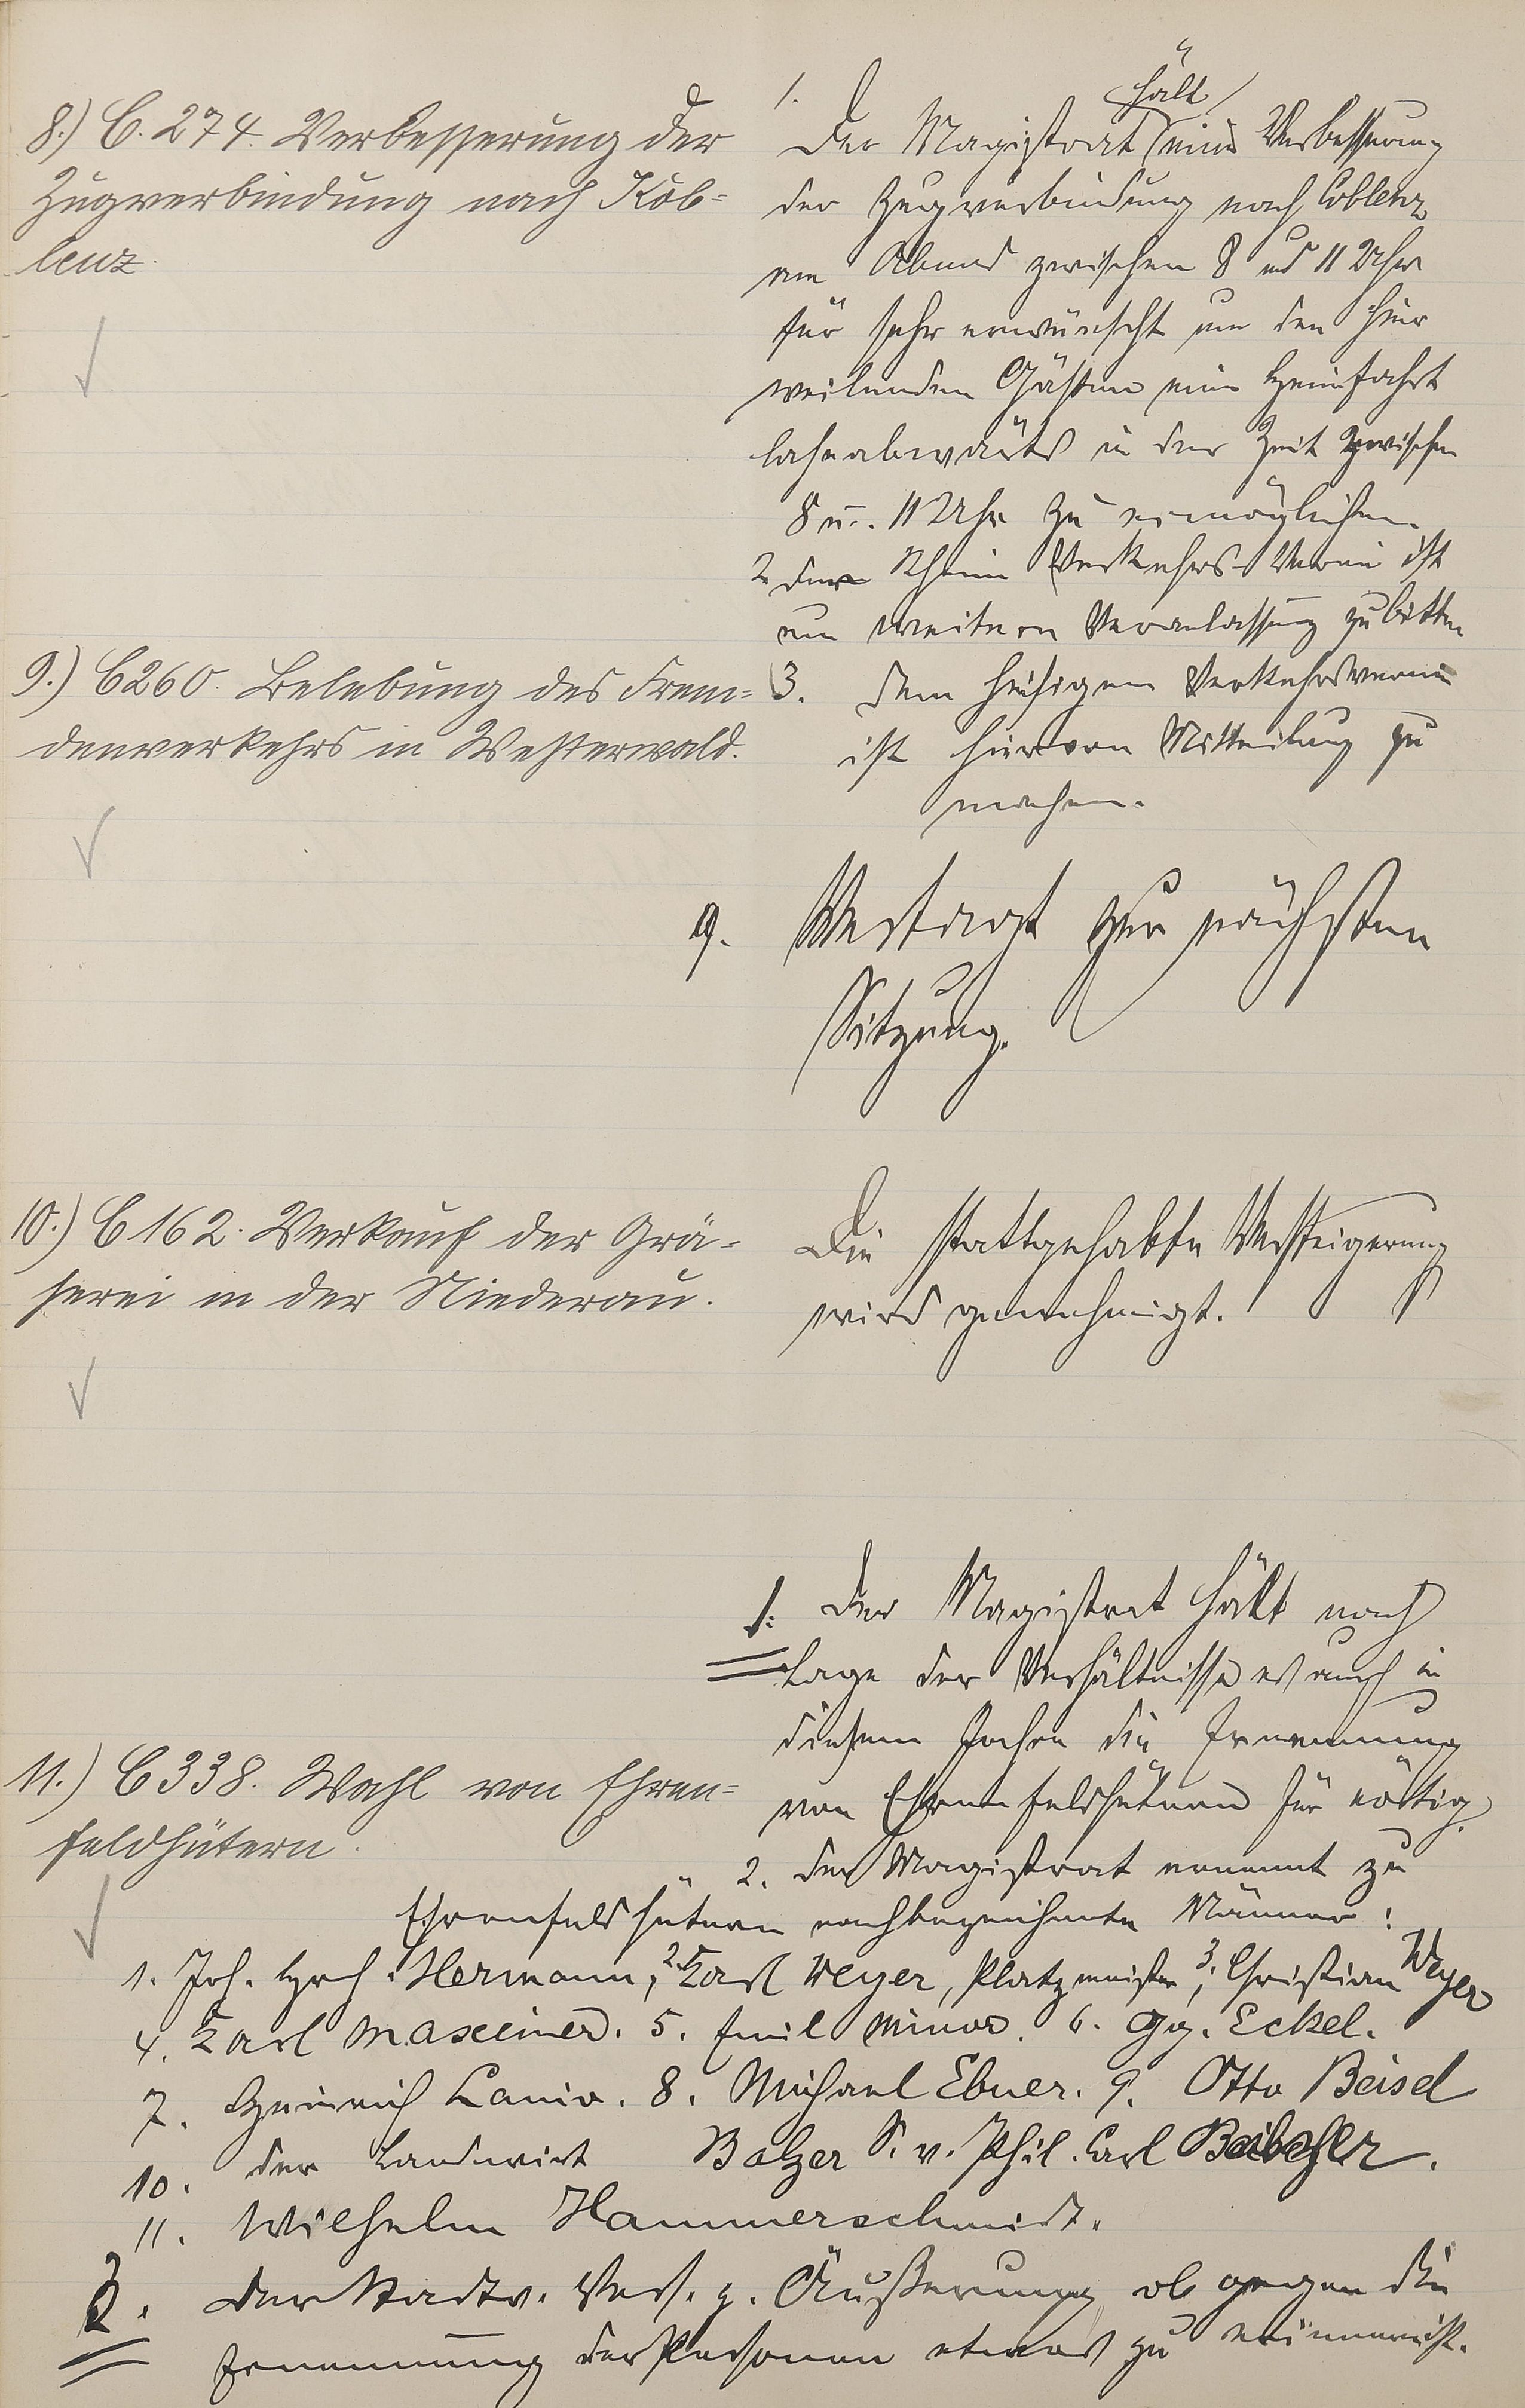 8.) C. 274. Verbesserung der
Zugverbindung nach Kob-
lenz.
1.
hält
Der Magistrat eine Verbesserung
der Zugverbindung nach Coblenz
am Abend zwischen 8 und 11 Uhr
für sehr erwünscht um den hier
weilenden Gästen eine Heimfahrt
lahnabwärts in der Zeit zwischen
8 u. 11 Uhr zu ermöglichen.
2. der Rhein Verkehrs-Verein ist
um weitere Veranlassung zu bitten
3. dem hiesigen Verkehrsverein
ist hiervon Mitteilung zu
machen.
9.) C 260. Belebung des Frem-
denverkehrs im Westerwald.
9. Vertagt zur nächsten
Sitzung.
10.) C 162. Verkauf der Grä-
serei in der Niederau.
Die stattgehabte Versteigerung
wird genehmigt.
11.) C 338. Wahl von Ehren-
feldhütern.
1. Der Magistrat hält nach
Lage der Verhältnisse es auch in
diesem Jahre die Ernennung
von Ehrenfeldhütern für nötig.
2. der Magistrat ernennt zu
Ehrenfeldhütern nachbezeichnete Männer:
1. Joh. Hrch. Hermann, 2. Karl Weyer, Platzmeister, 3. Christian Weyer
4. Karl Maxeiner. 5. Emil Minor. 6. Gg. Eckel.
7. Heinrich Lanio. 8. Michael Ebner. 9. Otto Beisel
10. der Landwirt Balzer S. v. Phil. Carl
11. Wilhelm Hammerschmidt.
3. Der Stadtv. Vers. z. Äußerung ob gegen die
Ernennung der Personen etwas zu